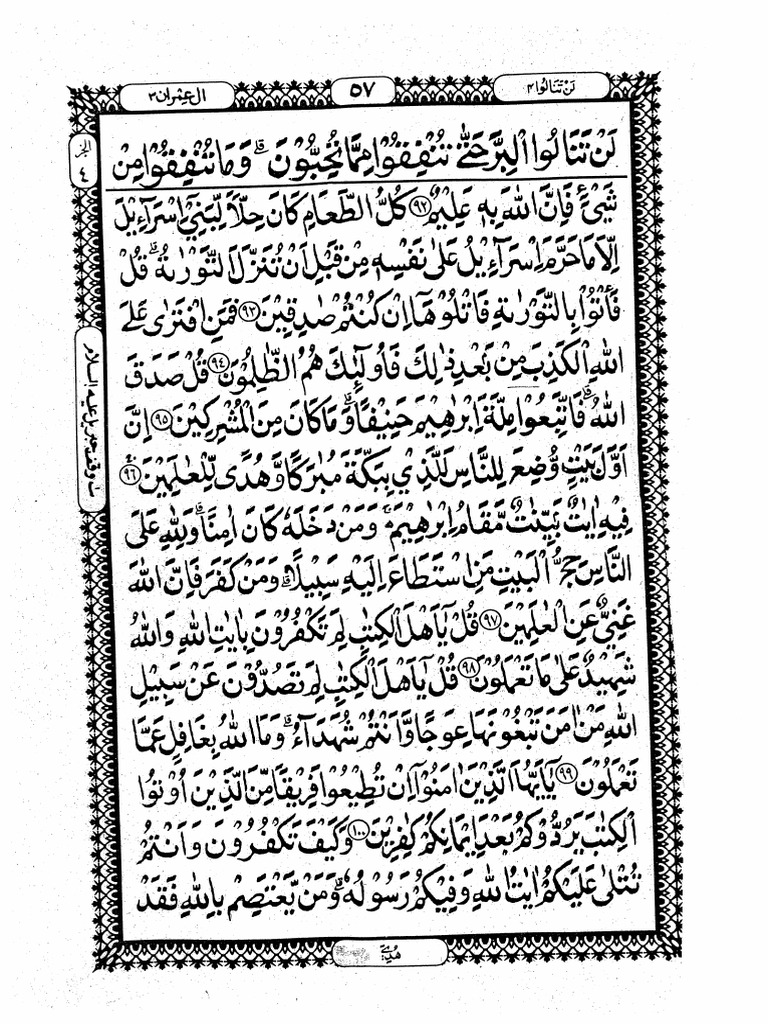 لَنْ تَنَالُوا ۴
۵۷
اٰل عِمْرٰن ۳
الجزء ٤
لَنْ تَنَالُوا الْبِرَّ حَتّٰى تُنْفِقُوْا مِمَّا تُحِبُّوْنَ ۗ وَمَا تُنْفِقُوْا مِنْ
شَيْئٍ فَاِنَّ اللّٰهَ بِهٖ عَلِيْمٌ ﴿٩٢﴾ كُلُّ الطَّعَامِ كَانَ حِلًّا لِّبَنِيْۤ اِسْرَآءِيْلَ
اِلَّا مَا حَرَّمَ اِسْرَآءِيْلُ عَلٰى نَفْسِهٖ مِنْ قَبْلِ اَنْ تُنَزَّلَ التَّوْرٰىةُ ۗ قُلْ
فَأْتُوْا بِالتَّوْرٰىةِ فَاتْلُوْهَاۤ اِنْ كُنْتُمْ صٰدِقِيْنَ ﴿٩٣﴾ فَمَنِ افْتَرٰى عَلَى
اللّٰهِ الْكَذِبَ مِنْۢ بَعْدِ ذٰلِكَ فَاُولٰٓئِكَ هُمُ الظّٰلِمُوْنَ ﴿٩٤﴾ قُلْ صَدَقَ
اللّٰهُ ۗ فَاتَّبِعُوْا مِلَّةَ اِبْرٰهِيْمَ حَنِيْفًا ۗ وَمَا كَانَ مِنَ الْمُشْرِكِيْنَ ﴿٩٥﴾ اِنَّ
اَوَّلَ بَيْتٍ وُّضِعَ لِلنَّاسِ لَلَّذِيْ بِبَكَّةَ مُبٰرَكًا وَّهُدًى لِّلْعٰلَمِيْنَ ﴿٩٦﴾
فِيْهِ اٰيٰتٌۢ بَيِّنٰتٌ مَّقَامُ اِبْرٰهِيْمَ ۚ وَمَنْ دَخَلَهٗ كَانَ اٰمِنًا ۗ وَلِلّٰهِ عَلَى
النَّاسِ حِجُّ الْبَيْتِ مَنِ اسْتَطَاعَ اِلَيْهِ سَبِيْلًا ۗ وَمَنْ كَفَرَ فَاِنَّ اللّٰهَ
غَنِيٌّ عَنِ الْعٰلَمِيْنَ ﴿٩٧﴾ قُلْ يٰۤاَهْلَ الْكِتٰبِ لِمَ تَكْفُرُوْنَ بِاٰيٰتِ اللّٰهِ وَاللّٰهُ
شَهِيْدٌ عَلٰى مَا تَعْمَلُوْنَ ﴿٩٨﴾ قُلْ يٰۤاَهْلَ الْكِتٰبِ لِمَ تَصُدُّوْنَ عَنْ سَبِيْلِ
اللّٰهِ مَنْ اٰمَنَ تَبْغُوْنَهَا عِوَجًا وَّاَنْتُمْ شُهَدَآءُ ۗ وَمَا اللّٰهُ بِغَافِلٍ عَمَّا
تَعْمَلُوْنَ ﴿٩٩﴾ يٰۤاَيُّهَا الَّذِيْنَ اٰمَنُوْۤا اِنْ تُطِيْعُوْا فَرِيْقًا مِّنَ الَّذِيْنَ اُوْتُوا
الْكِتٰبَ يَرُدُّوْكُمْ بَعْدَ اِيْمَانِكُمْ كٰفِرِيْنَ ﴿١٠٠﴾ وَكَيْفَ تَكْفُرُوْنَ وَاَنْتُمْ
تُتْلٰى عَلَيْكُمْ اٰيٰتُ اللّٰهِ وَفِيْكُمْ رَسُوْلُهٗ ۗ وَمَنْ يَّعْتَصِمْ بِاللّٰهِ فَقَدْ
وقف جبريل عليه السلام
هُدِيَ